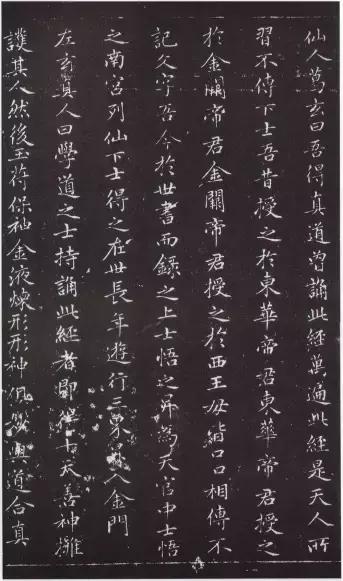 仙人葛玄曰吾得真道曾誦此經萬遍此經是天人所
習不傳下士吾昔授之於東華帝君東華帝君授之
於金闕帝君金闕帝君授之於西王母皆口口相傳不
記文字吾今於世書而錄之上士悟之昇為天官中士悟
之南宮列仙下士得之在世長年遊行三界昇入金門
左玄真人曰學道之士持誦此經者即得十天善神擁
護其人然後玉符保神金液煉形形神俱妙與道合真